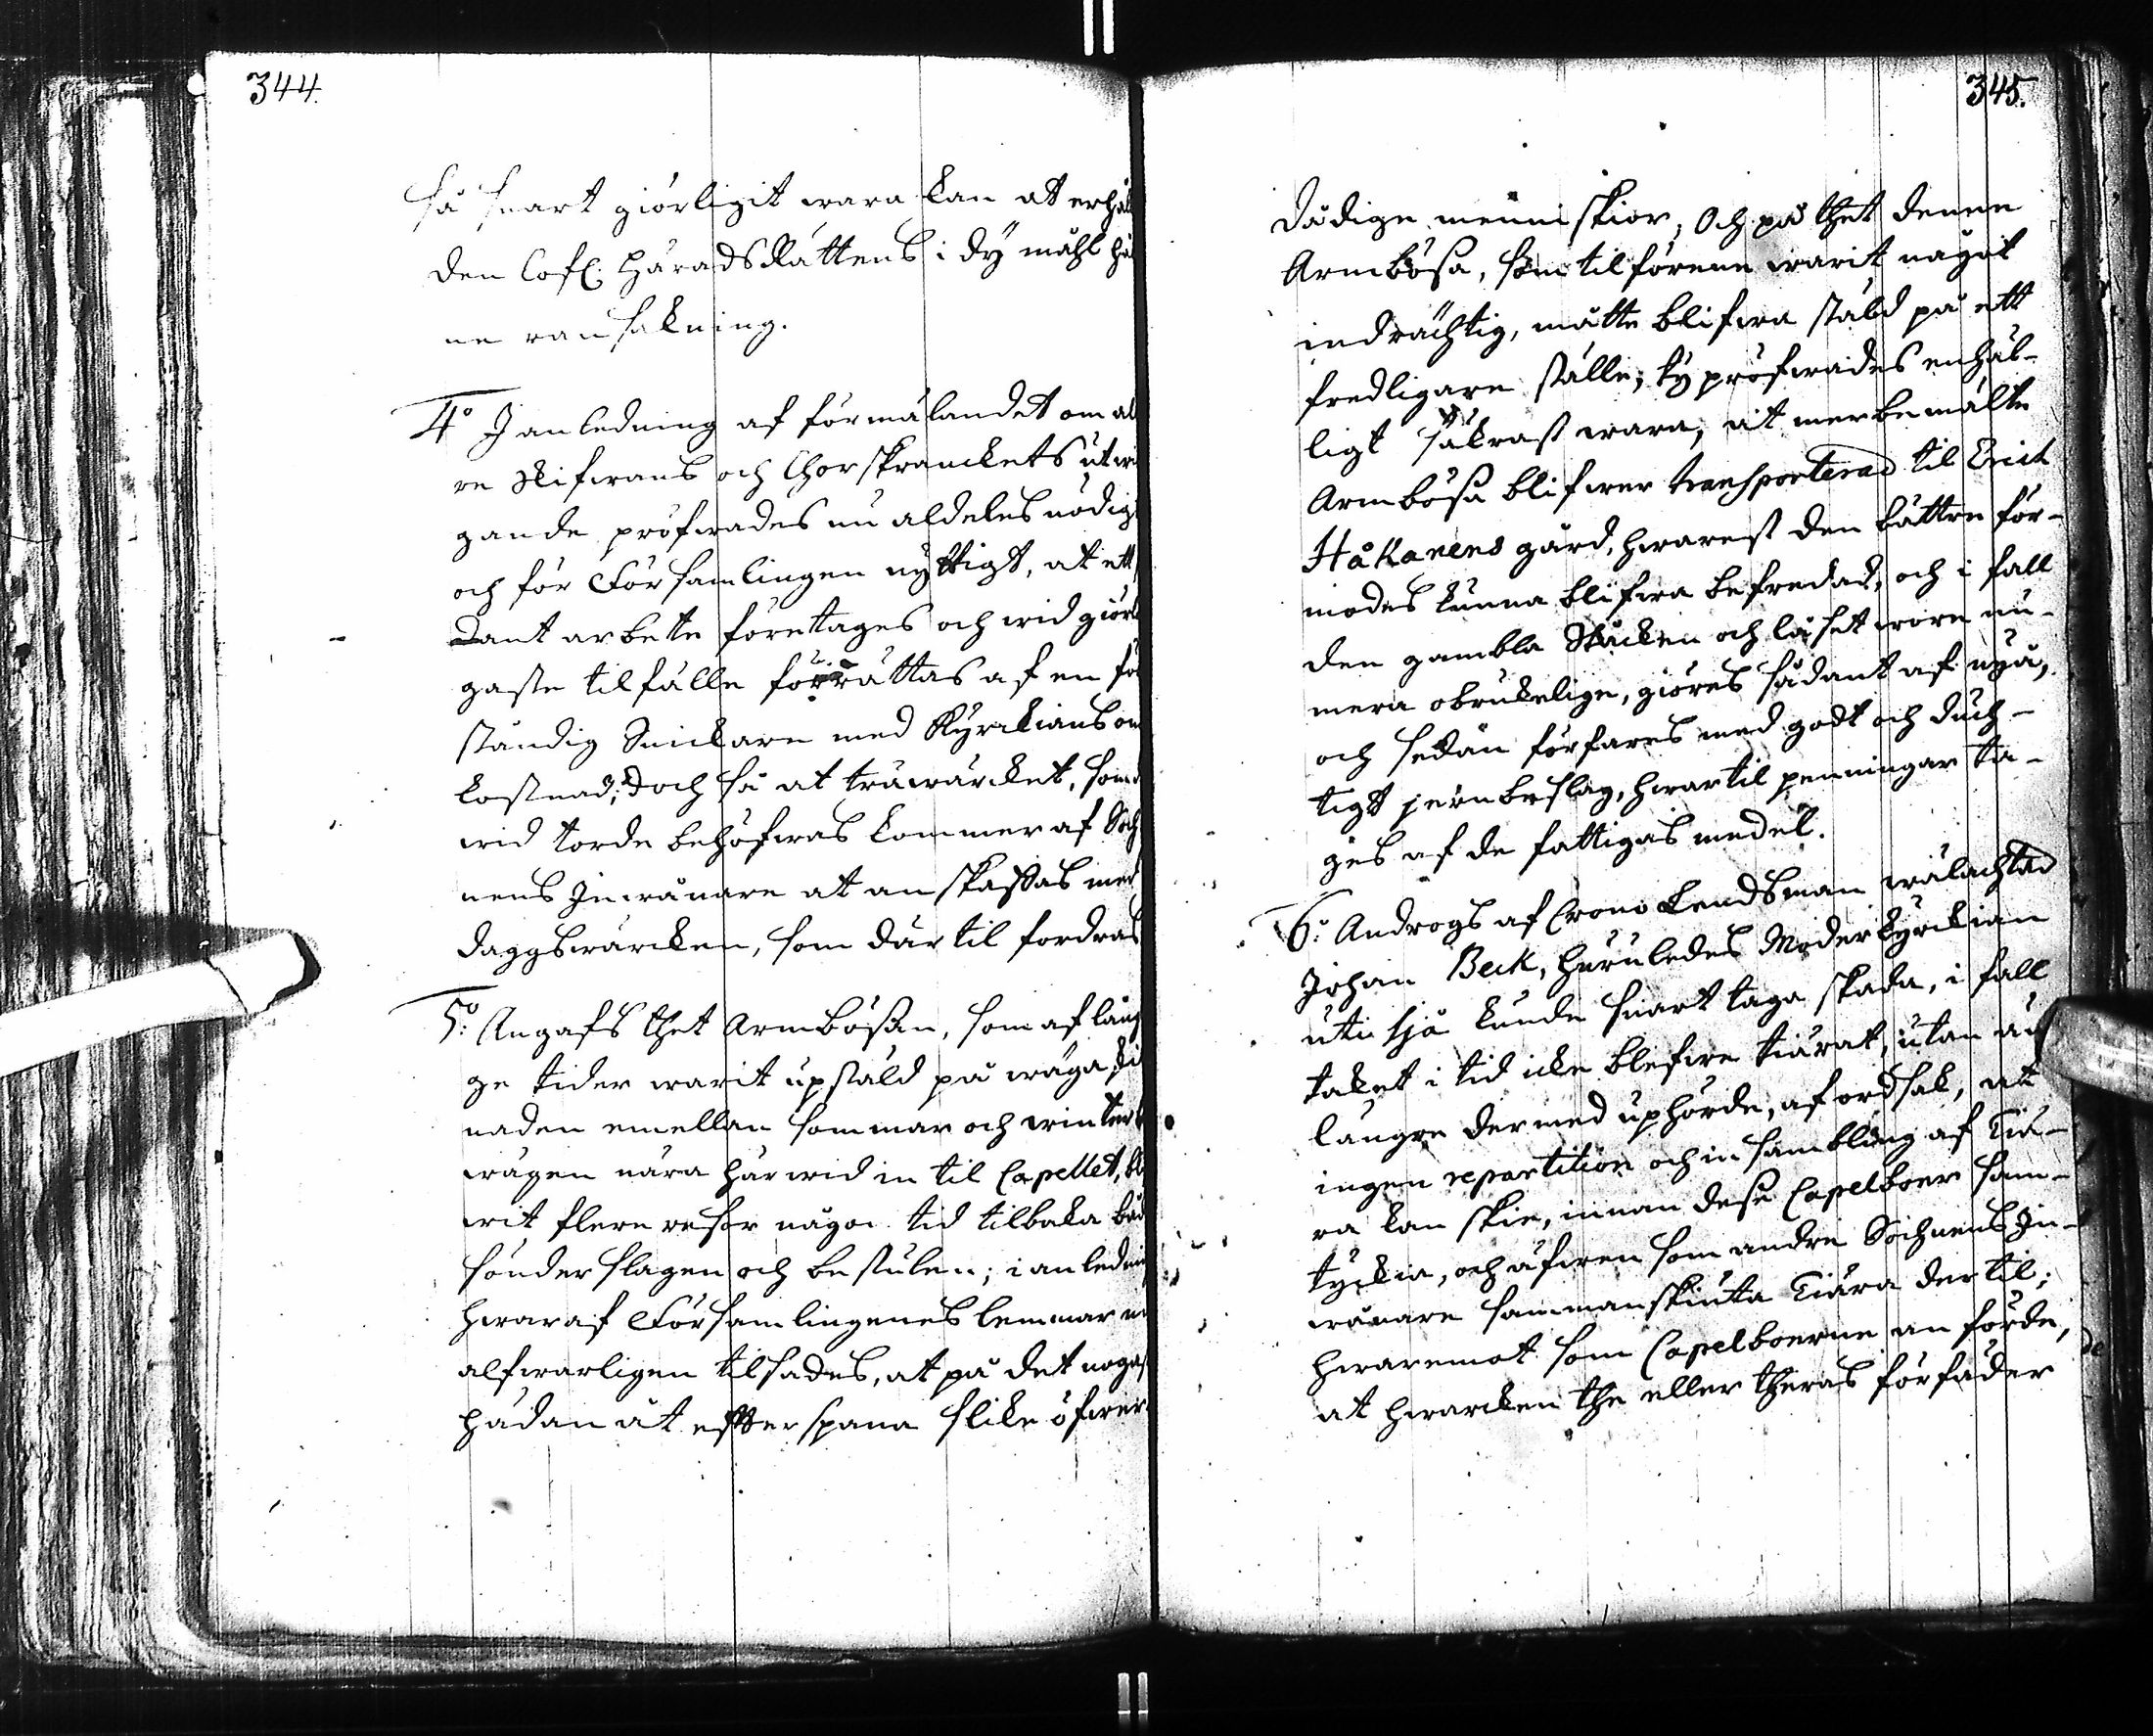 344.
så snart giörligit wara kan at erhål
den Lofl. HäradsRättens i dy måhl hål
ne ransakning.
4o I anledning af förmälandet om al
re Skifwans och Chorskranckets utwi
gande pröfwades nu aldeles nödig
och för Församlingen nyttigt, at ett
dant arbete företages och wid giörl
gaste tilfälle förrättas af en för
ståndig Snickare med Kyrckians om
kostnad; doch så at träwärcket, som
wid torde behöfwas kommer af Soch
nens Inwånare at anskaffas med
daggswärcken, som där til fordras
5o: Angafs thet Armbössan, som af lång
ge tider warit upstäld på wägaski
naden emellan sommar och winter
wägen nära här wid in til Capellet, bli
wit flere resor någon tid tilbaka båd
sönderslagen och bestulen; i anledning
hwaraf Församlingenes lemmar
alfwarligen tilsades, at på det nogas
hädan åt efterspana slike öfwer
345.
dådige menniskior; Och på thet denne
Armbössa, som tilförene warit något
indrächtig, måtte blifwa stäld på ett
fredligare ställe; ty pröfwades enhäl-
ligt säkrast wara, at merbemälte
Armbössa blifwer transporterad til Erich
Håkanens gård, hwarest den bättre för-
modes kunna blifwa befredad, och i fall
den gambla Stäcken och låset wore nu-
mera obrukelige, giöres sådant af nyå,
och sedan förfares med godt och duch-
tigt jernbeslag, hwartil penningar ta-
ges af de fattigas medel.
6o: Androgs af Crono Lendsman wälachtad
Johan Beck, huruledes Moderkyrckian
uti Ijå kunde snart taga skada, i fall
taket i tid icke blefwe tiärat, utan än
längre dermed uphörde, af ordsak, at
ingen repartition och insambling af Tiä-
ra kan skie, innan desse Capelboer sam-
tyckia, och äfwen som andre Sochnens In-
wånare sammanskiuta Tiära der til;
hwaremot som Capelboerne anförde,
at hwarcken the eller theras förfäder